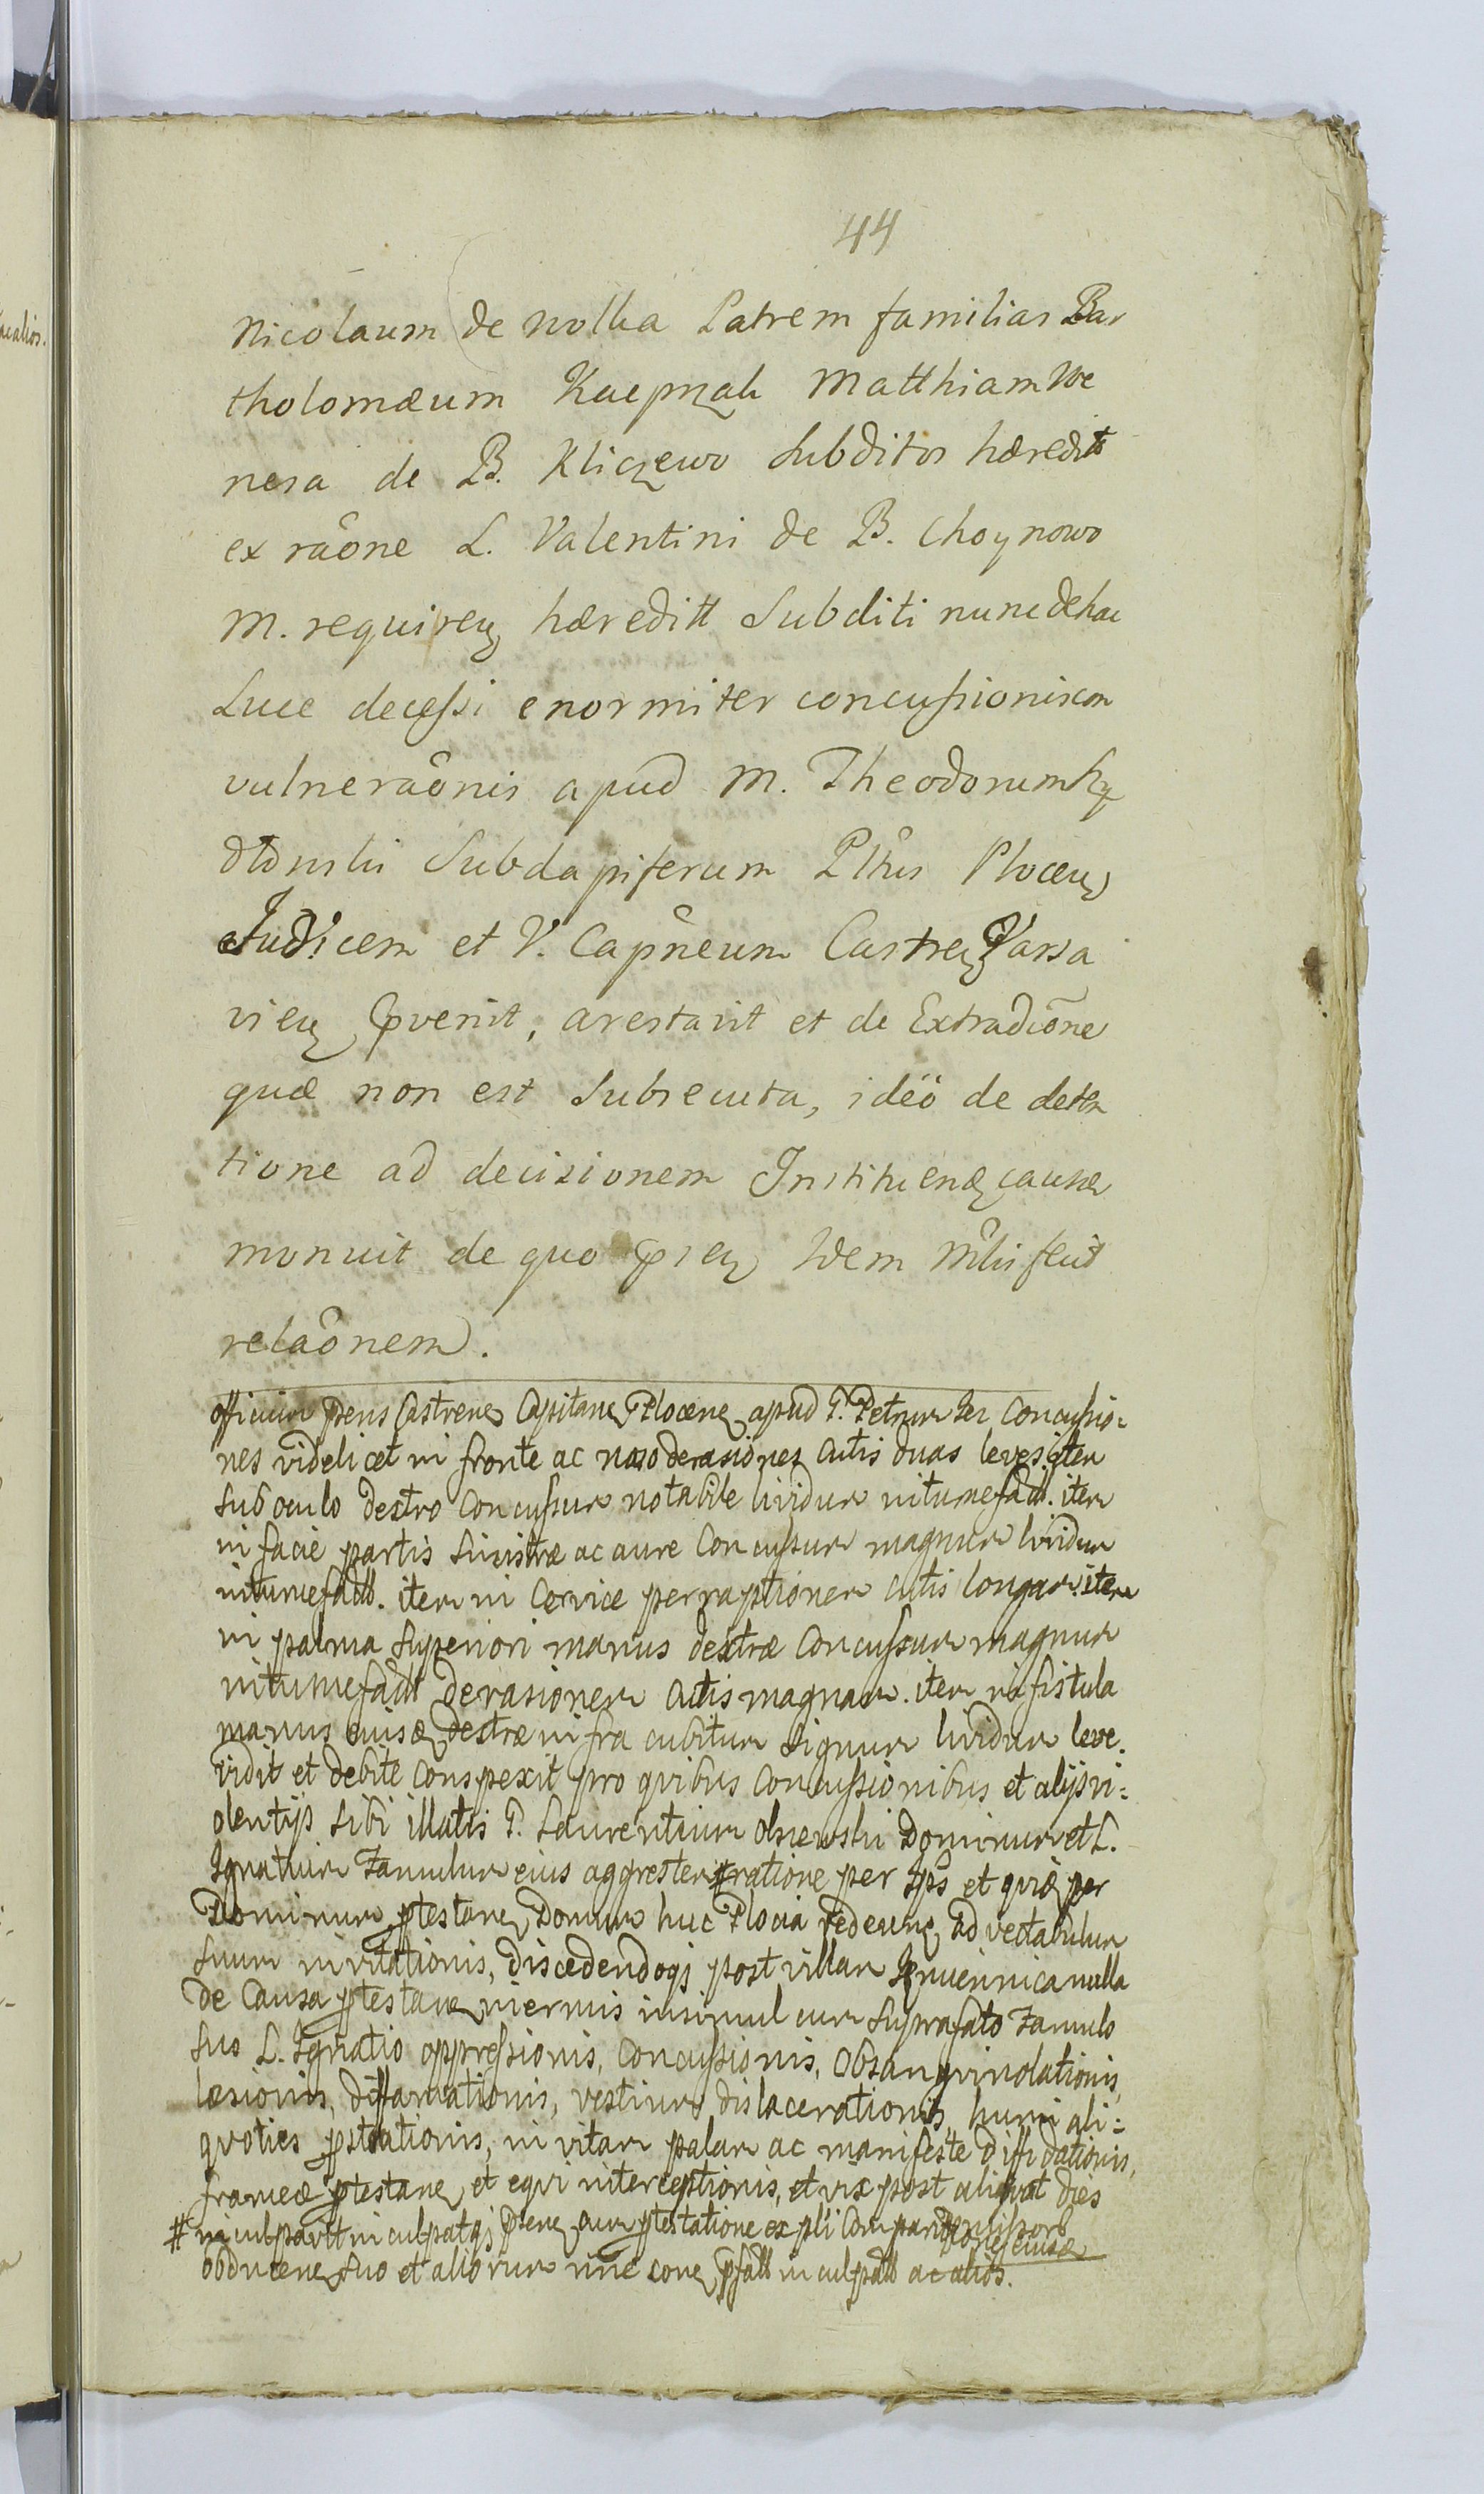 44
Nicolaum de wolka Patrem familias Bar
tholomæum Kacprzak Matthiam We
nera de B. Kliczewo Subditos hæredit
ex raône L. Valentini de B. Choynowo
M. requiren hæreditt Subditi nunc de hac
Luce decessi enormiter concussionis
vulneraônis apud M. Theodorum Sz
Subdapiferum Pltus Plocen
Judicem et V. Capneum Castren Varsa
vien pvenit, arestavit et de Extradiône
quæ non est Subsecuta, ideö de deten
tione ad decisionem Instituenæ causæ
monuit de quo psen Idem Mlis fecit
relaônem.
Officium psens Castrense Capitane Plocense apud P. Petrum Concussio-
nes videlicet in fronte ac naso derasiones Cutis duas leves, item
sub oculo dextro Concussum notabile lividum intumefactt. item
in facie partis Sinistræ ac aure Concussum magnum lividum
intumefactt. item in Cervice perraptionem cutis longam. item
in palma Superiori manus dextræ Concussum magnum
intumefactt derasionem Cutis magnam. item in fistula
manus eiusd dextræ infra cubitum Signum lividum leve.
vidit et debite Conspexit pro quibus Concussionibus et alijs vi-
olentijs Sibi illatis P. Laurentium Olszewski Dominum et L.
Ignatium Famulum eius aggresser # ratione per Ipsos et quid per
Dominum ptestane Domum huc Plocia redeune, ad vectabulum
Suum invitationis, discedendoqj post villam nulla
de Causa ptestane inermis insimul cum Suprafato Famulo
Suo L. Ignatio oppressionis, Concussionis, Obsanguinolationis,
læsionis, diffamationis, vestium dislacerationis, humi ali-
quoties pstrationis, in vitam palam ac manifeste diffidationis,
frameæ ptestane et equi interceptionis, et vix post aliquot dies
# inculpavit inculpatqj psene cum ptestatione expli
Suo et aliorum pfatt inculpatt ac alios.